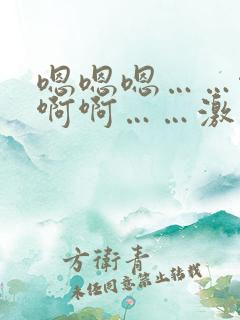 嗯嗯嗯……
啊啊……激
方衛青
未经同意禁止转载